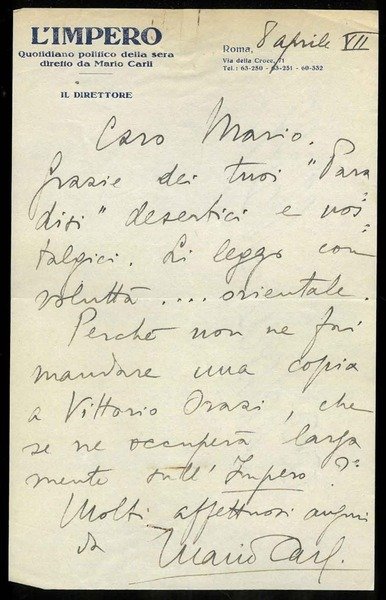 L'IMPERO
Quotidiano politico della sera
diretto da Mario Carli
IL DIRETTORE
Roma, 8 aprile VII
Via della Croce, 71
Tel.: 63-250 - 63-251 - 60-332
Caro Mario.
Grazie dei tuoi "Para
disi" desertici e nos
talgici. Li leggo con
voluttà .... orientale.
Perchè non ne fai
mandare una copia
a Vittorio Orazi, che
se ne occuperà larga
mente sull'Impero?
Molti affettuosi auguri
da Mario Carli